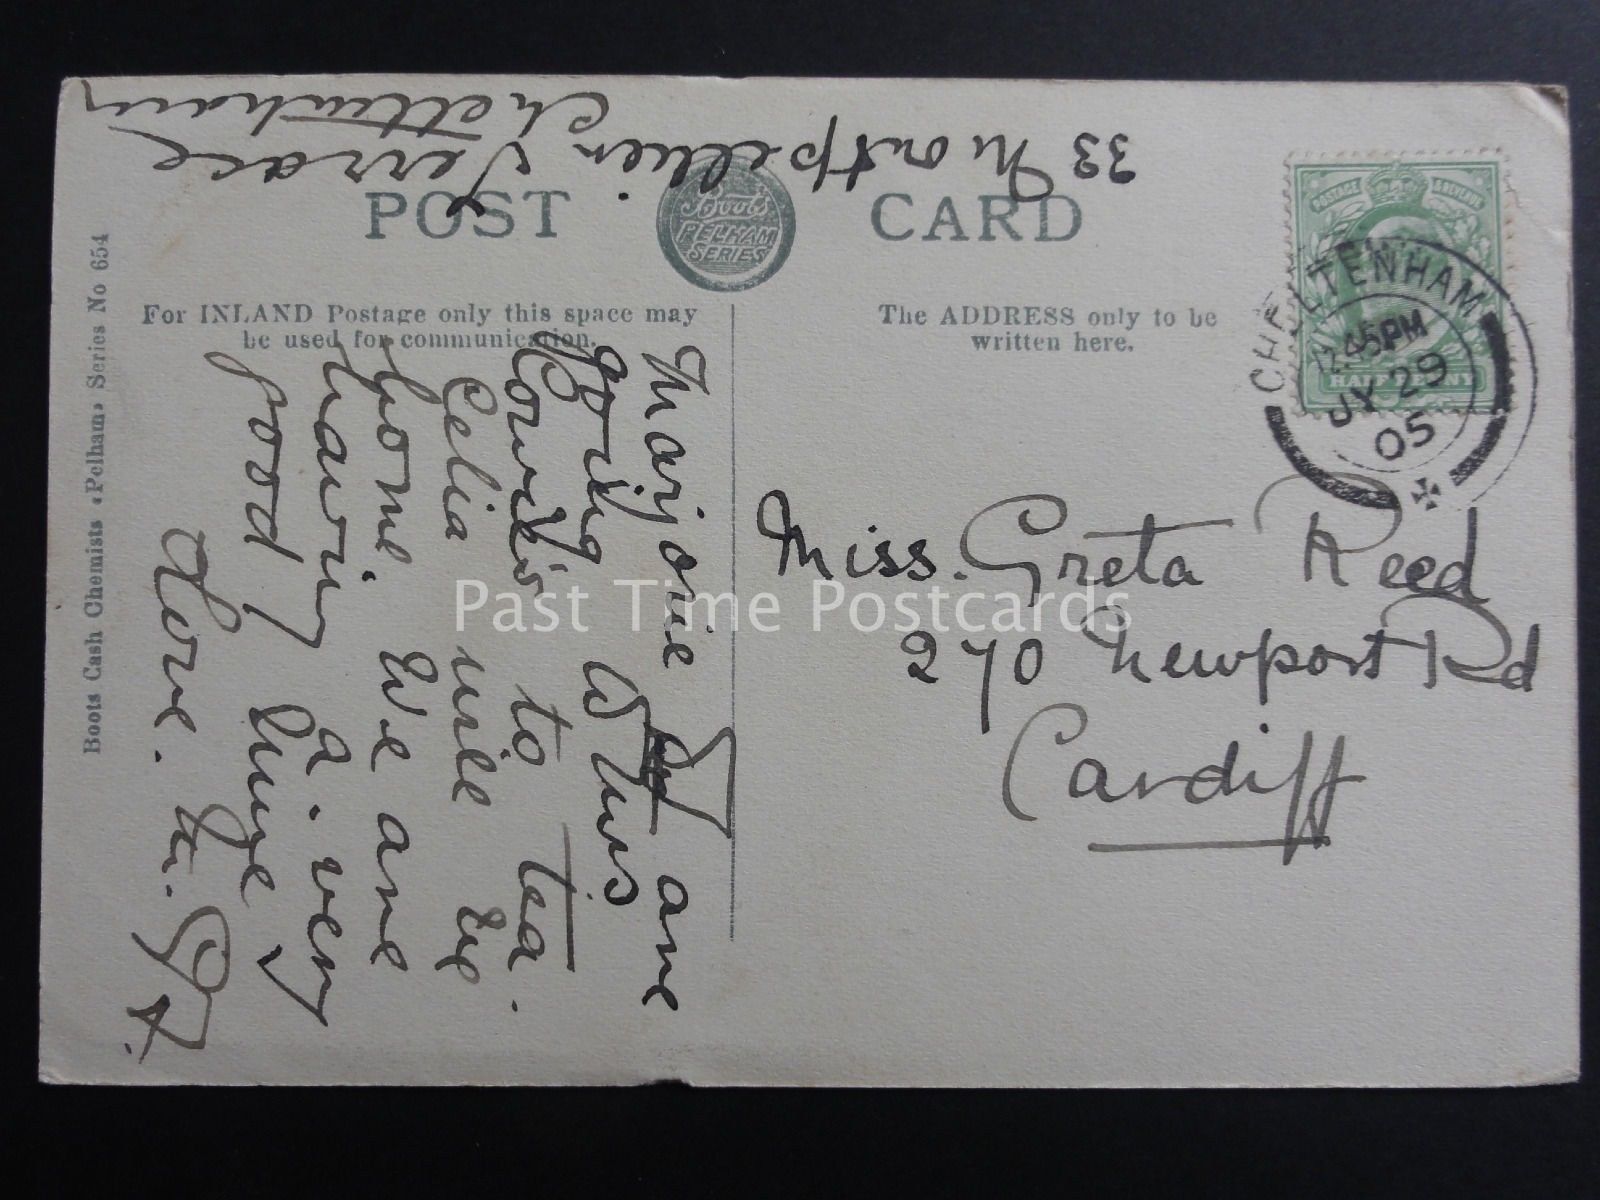 33 Montpellier Terrace
Cheltenham
POST CARD
Boots
PELHAM
SERIES
For INLAND Postage only this space may
be used for communication.
The ADDRESS only to be
written here.
Boots Cash Chemists "Pelham" Series No 654
POSTAGE & REVENUE
HALF PENNY
CHELTENHAM
12.45PM
JY 29
05
Marjorie & I are
going
to tea.
Celia will be
home. We are
having a very
good time
Love. M.
Miss. Greta Reed
270 Newport Rd
Cardiff
Past Time Postcards